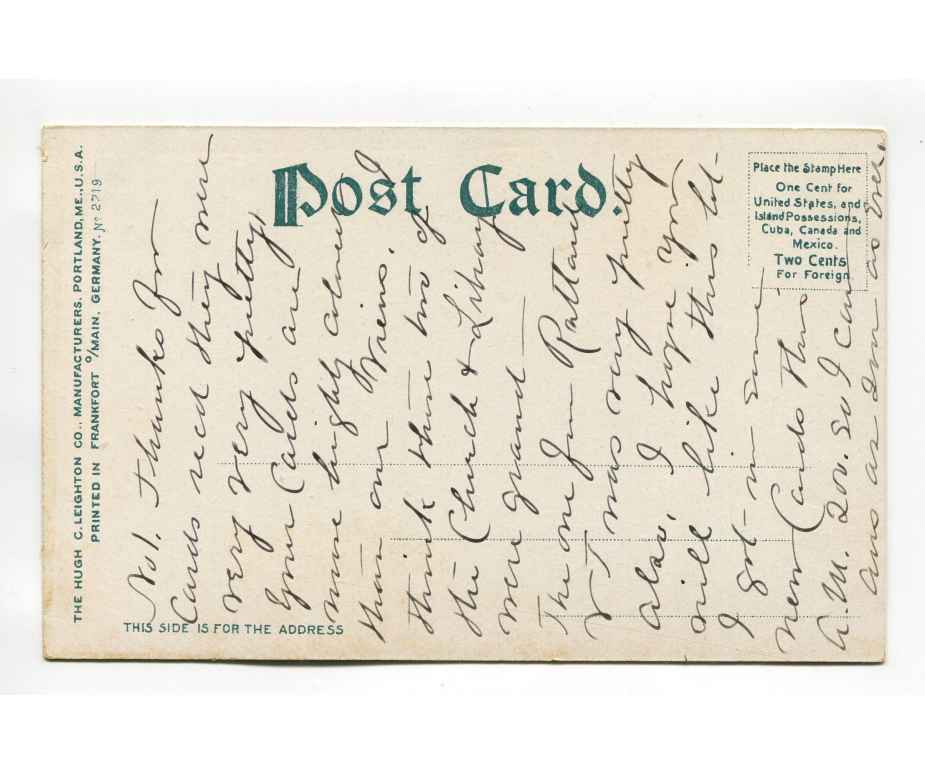 Post Card.
Place the Stamp Here
One Cent for
United States, and
Island Possessions,
Cuba, Canada and
Mexico.
Two Cents
For Foreign.
THE HUGH C. LEIGHTON CO., MANUFACTURERS, PORTLAND, ME., U.S.A.
PRINTED IN FRANKFORT o/MAIN, GERMANY. No 2719
THIS SIDE IS FOR THE ADDRESS
No 1. Thanks for
Cards recd they were
very very pretty
your Cards are
more brightly colored
than our Views. I
think those two of
the Church & Library
were grand —
The one from Rutland
Vt was very pretty
also, I hope you
will like this lot-
I got- in some
new Cards this
a.m. 200. so I can
ans as soon as